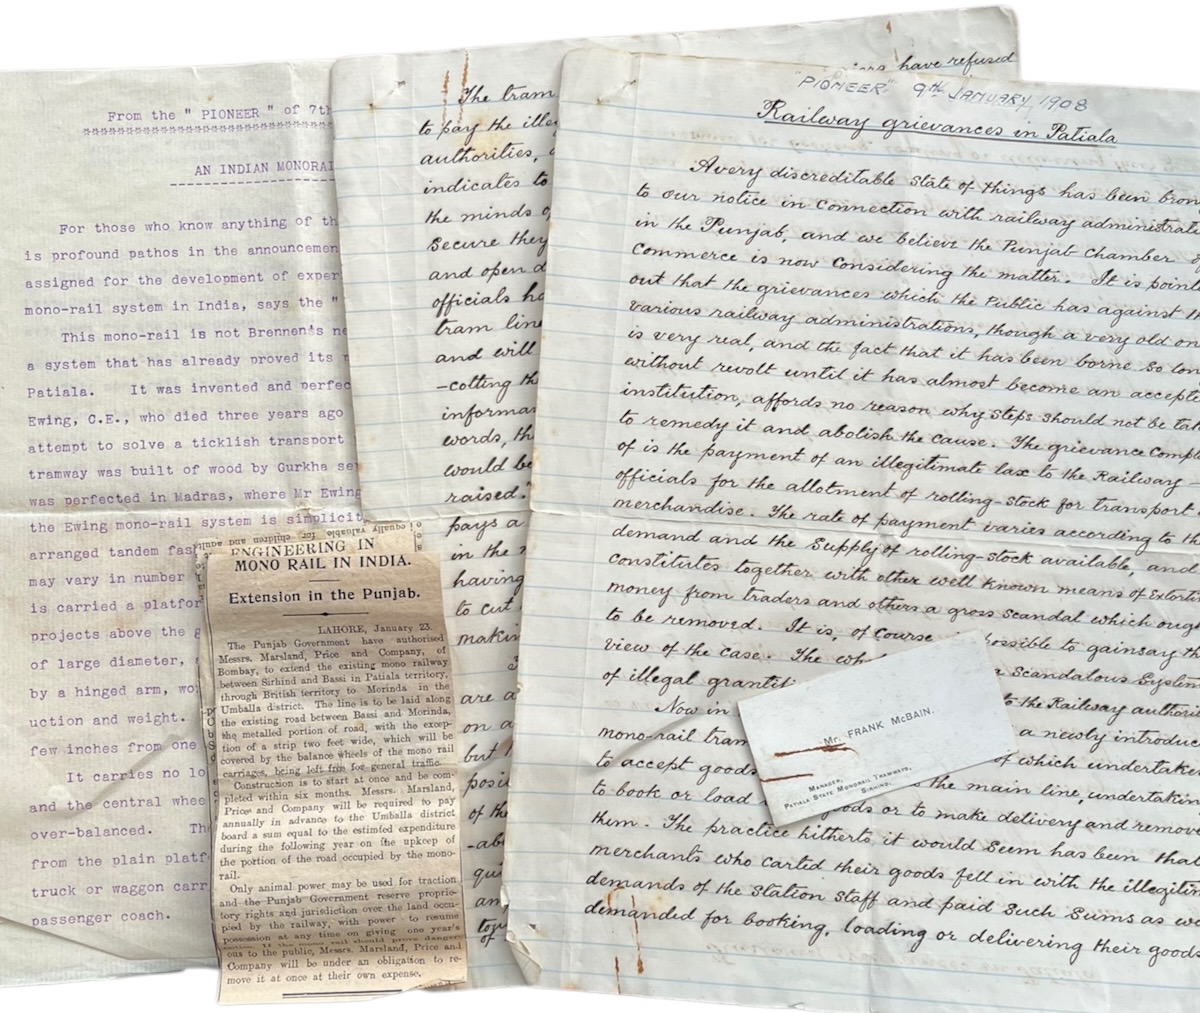 From the " PIONEER " of 7th
AN INDIAN MONORAI
For those who know anything of th
is profound pathos in the announcemen
assigned for the development of exper
mono-rail system in India, says the "
This mono-rail is not Brennen's ne
a system that has already proved its
Patiala. It was invented and perfec
Ewing, C.E., who died three years ago
attempt to solve a ticklish transport
tramway was built of wood by Gurkha se
was perfected in Madras, where Mr Ewing
the Ewing mono-rail system is simplicit
arranged tandem fas
may vary in number
is carried a platfor
projects above the g
of large diameter,
by a hinged arm, wo
uction and weight.
few inches from one
It carries no lo
and the central whee
over-balanced. Th
from the plain platf
truck or waggon carr
passenger coach.
equally valuable for children and adults
ENGINEERING IN
MONO RAIL IN INDIA.
Extension in the Punjab.
LAHORE, January 23.
The Punjab Government have authorised
Messrs. Marsland, Price and Company, of
Bombay, to extend the existing mono railway
between Sirhind and Bassi in Patiala territory,
through British territory to Morinda in the
Umballa district. The line is to be laid along
the existing road between Bassi and Morinda,
the metalled portion of road, with the excep-
tion of a strip two feet wide, which will be
covered by the balance wheels of the mono rail
carriages, being left free for general traffic.
Construction is to start at once and be com-
pleted within six months. Messrs. Marsland,
Price and Company will be required to pay
annually in advance to the Umballa district
board a sum equal to the estimfed expenditure
during the following year on the upkeep of
the portion of the road occupied by the mono-
rail.
Only animal power may be used for traction
and the Punjab Government reserve proprie-
tory rights and jurisdiction over the land occu-
pied by the railway, with power to resume
possession at any time on giving one year's
ous to the public, Messrs. Marsland, Price and
Company will be under an obligation to re-
move it at once at their own expense.
have refused
The tram
to pay the ille
authorities,
indicates to
the minds o
secure they
and open d
officials ha
tram line
and will
-cotting th
informa
words, th
would be
raised."
pays a
in the
having
to cut
makin
are a
on a
but
posi
of the
-ab
qui
an
of
"PIONEER" 9th JANUARY, 1908
Railway grievances in Patiala
A very discreditable state of things has been brou
to our notice in connection with railway administrati
in the Punjab, and we believe the Punjab chamber
Commerce is now considering the matter. It is pointe
out that the grievances which the Public has against th
various railway administrations, though a very old on
is very real, and the fact that it has been borne so lon
without revolt until it has almost become an accepte
institution, affords no reason why steps should not be tak
to remedy it and abolish the cause. The grievance compl
of is the payment of an illegitimate tax to the Railway -
officials for the allotment of rolling-stock for transport
merchandise. The rate of payment varies according to th
demand and the supply of rolling-stock available, and
constitutes together with other well known means of extorti
money from traders and others a gross scandal which ough
to be removed. It is, of course possible to gainsay th
view of the case. The wh a scandalous system
of illegal gratifi to the Railway authori
Now in a newly introduc
mono-rail tram of which undertake
to accept goods the main line, undertakin
to book or load goods or to make delivery and remove
them. The practice hitherto, it would seem has been that
merchants who carted their goods fell in with the illegitim
demands of the station staff and paid such sums as we
demanded for booking, loading or delivering their goods
Mr. FRANK McBAIN.
MANAGER,
PATIALA STATE MONORAIL TRAMWAYS,
SIRHIND.